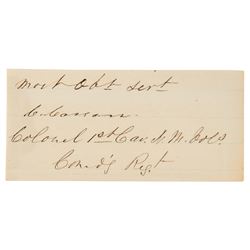 most Obt Sert
C. Carson
Colonel 1st Cav. N. M. Vols
Comd'g Regt